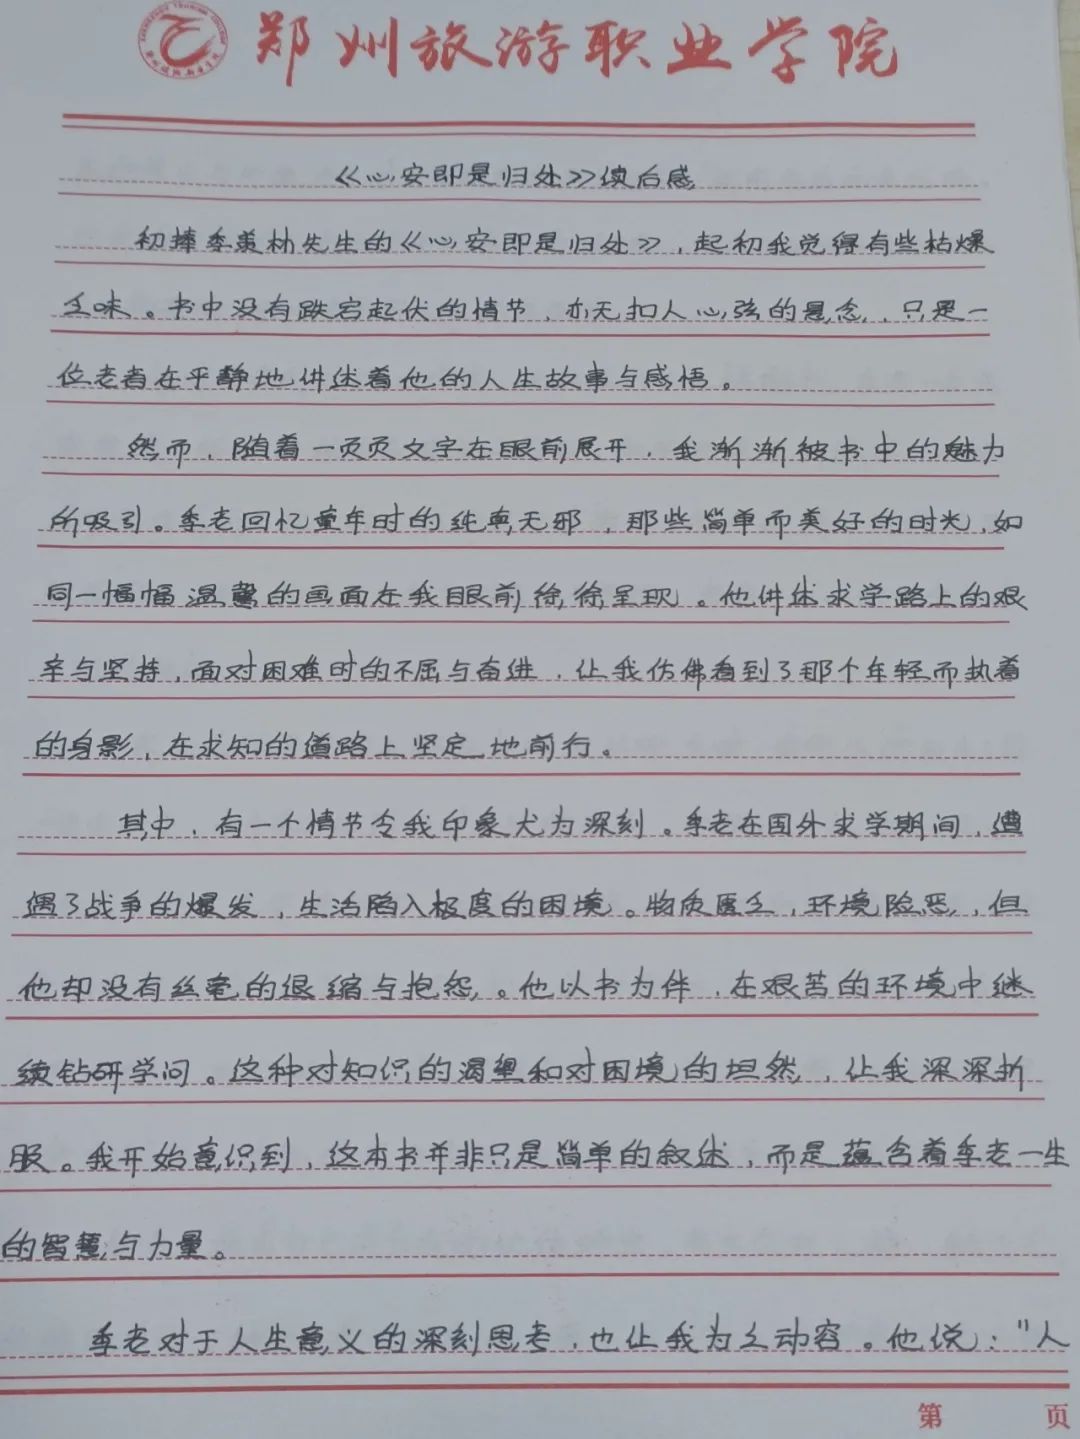 郑州旅游职业学院
《心安即是归处》读后感
初捧季羡林先生的《心安即是归处》，起初我觉得有些枯燥
乏味。书中没有跌宕起伏的情节，亦无扣人心弦的悬念，只是一
位老者在平静地讲述着他的人生故事与感悟。
然而，随着一页页文字在眼前展开，我渐渐被书中的魅力
所吸引。季老回忆童年时的纯真无邪，那些简单而美好的时光，如
同一幅幅温馨的画面在我眼前徐徐呈现。他讲述求学路上的艰
辛与坚持，面对困难时的不屈与奋进，让我仿佛看到了那个年轻而执着
的身影，在求知的道路上坚定地前行。
其中，有一个情节令我印象尤为深刻。季老在国外求学期间，遭
遇了战争的爆发，生活陷入极度的困境。物质匮乏，环境险恶，但
他却没有丝毫的退缩与抱怨。他以书为伴，在艰苦的环境中继
续钻研学问。这种对知识的渴望和对困境的坦然，让我深深折
服。我开始意识到，这本书并非只是简单的叙述，而是蕴含着季老一生
的智慧与力量。
季老对于人生意义的深刻思考，也让我为之动容。他说：“人
第 页